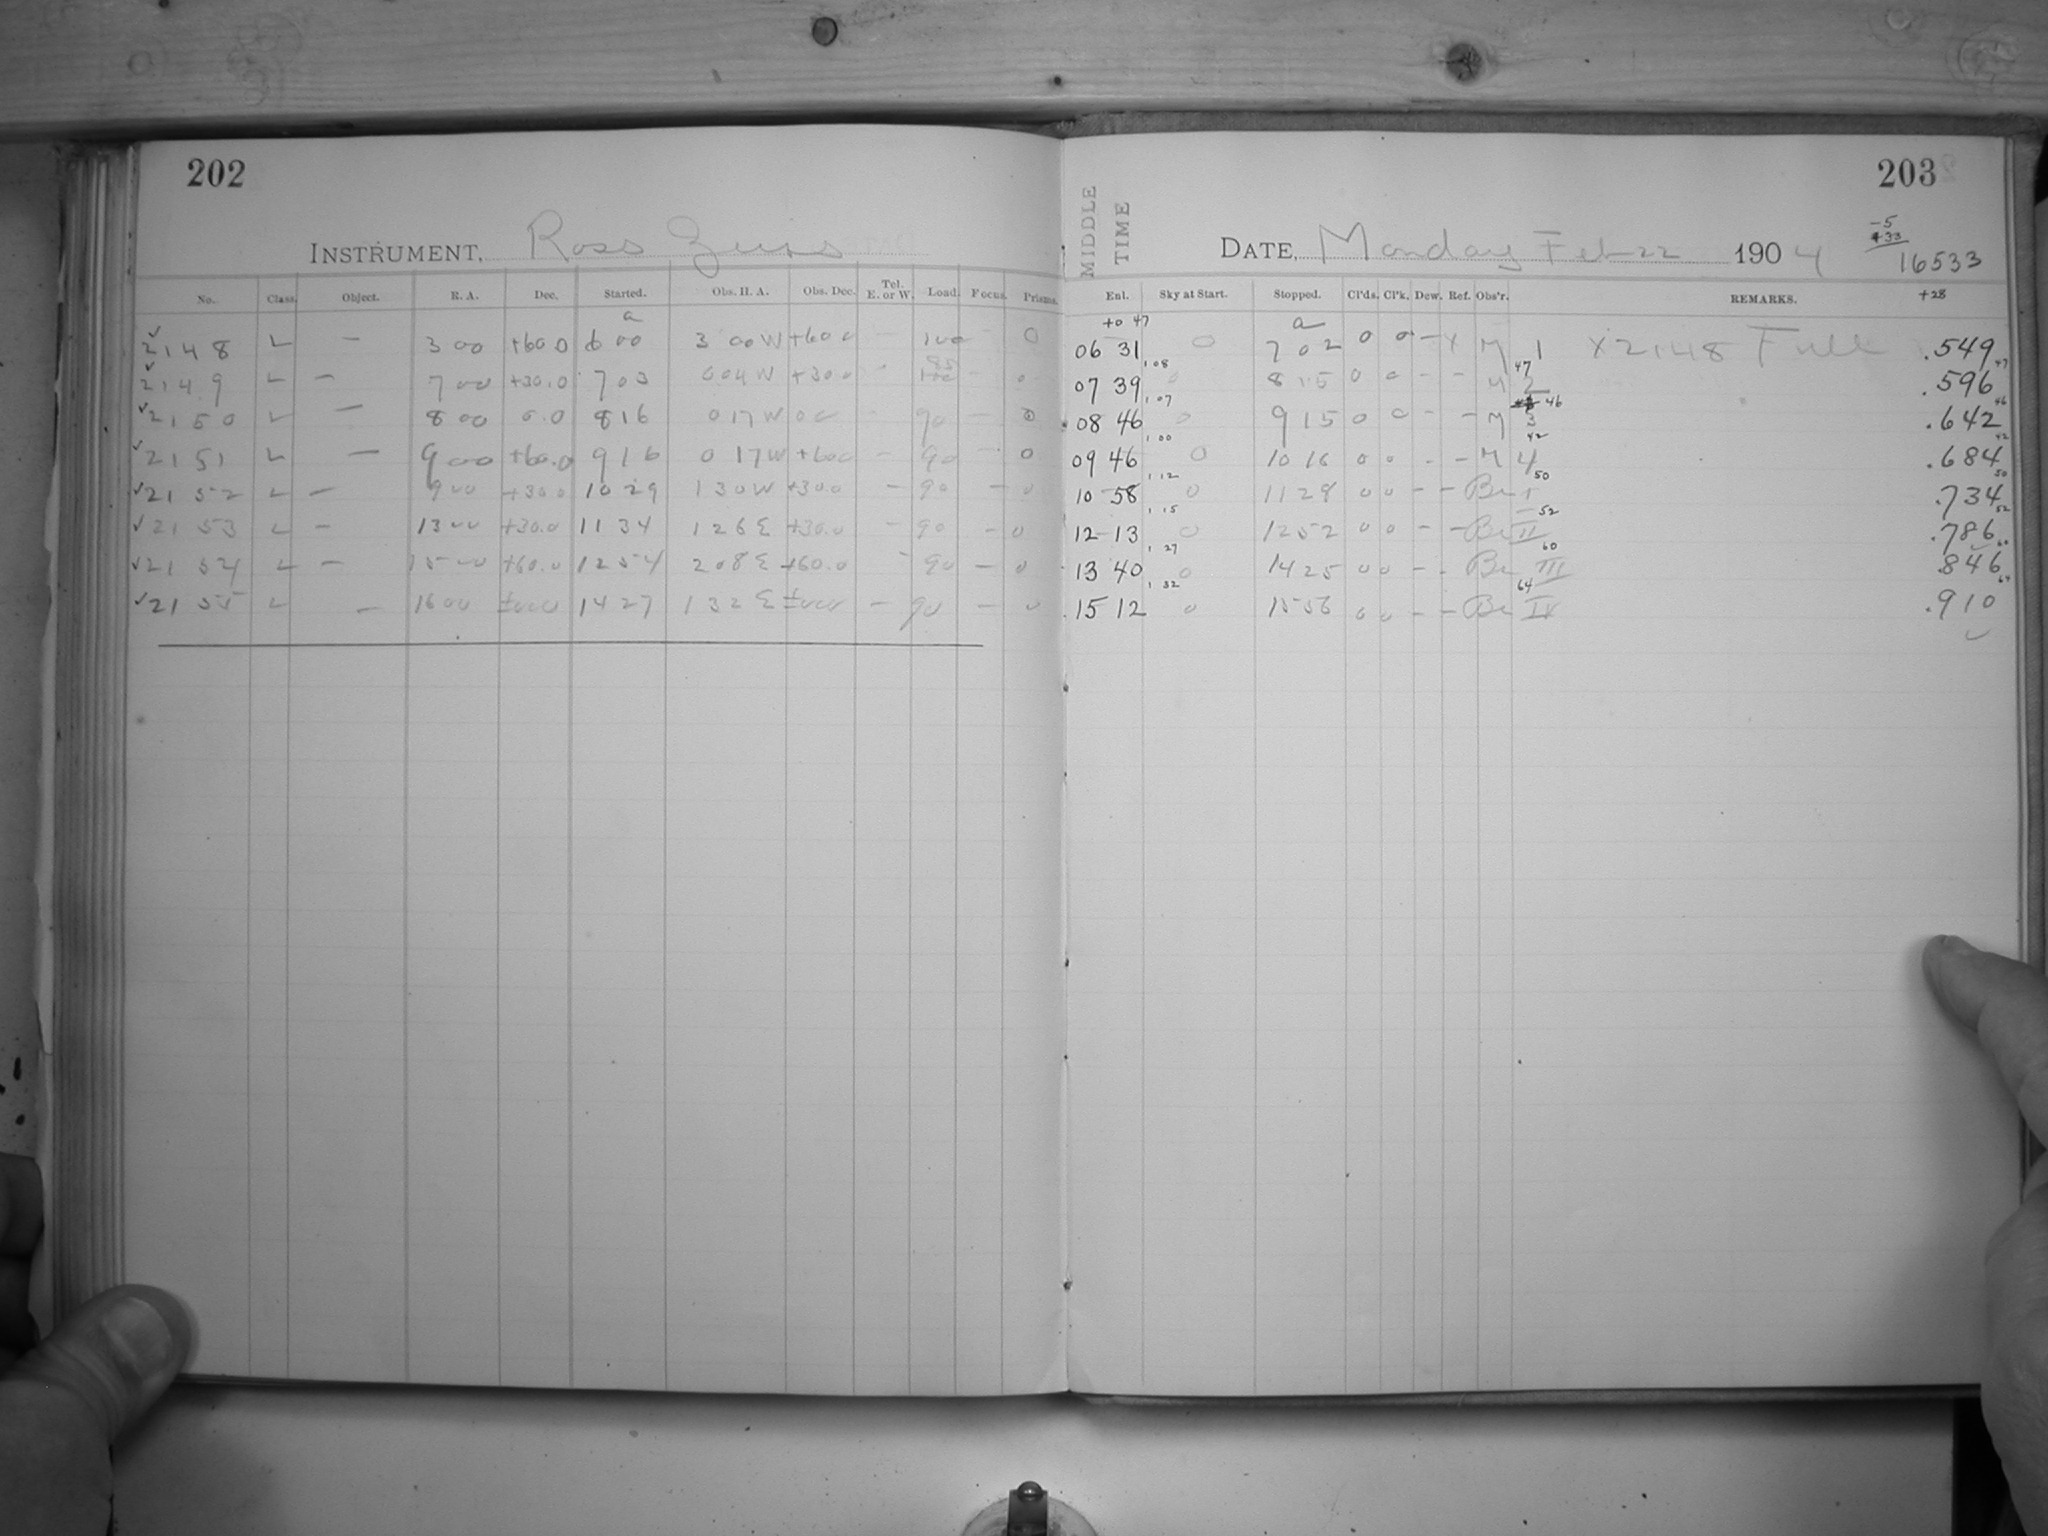 202
INSTRUMENT, Ross Zeiss
No. Class. Object. R. A. Dec. Started. Obs. H. A. Obs. Dec. Tel. E. or W. Load. Focus. Prisms.
a
✓2148 L — 3 00 +60.0 6 00 3 00 W +60 0 — 100 — 0
85
✓2149 L — 7 00 +30.0 7 03 0 04 W +30.0 - 100 - 0
✓2150 L — 8 00 0.0 8 16 0 17 W 00 - 90 - 0
✓2151 L — 9 00 +60.0 9 16 0 17 W +60.0 - 90 - 0
✓2152 L — 9 00 +30.0 10 29 1 30 W +30.0 - 90 - 0
✓2153 L — 13 00 +30.0 11 34 1 26 E +30.0 - 90 - 0
✓2154 L — 15 00 +60.0 12 54 2 08 E +60.0 - 90 - 0
✓2155 L — 16 00 ±000 14 27 1 32 E ±000 - 90 - 0
203
MIDDLE TIME
DATE, Monday Feb 22 1904
-5
+33
16533
Enl. Sky at Start. Stopped. Cl'ds. Cl'k. Dew. Ref. Obs'r. REMARKS. +28
+0 47 a
06 31 0 7 02 0 0 — X M 1 X2148 Full .549
1 08 47 47
07 39 0 8 15 0 0 - - M 2 .596
1 07 46 46
08 46 0 9 15 0 0 - - M 3 .642
1 00 42 42
09 46 0 10 16 0 0 - - M 4 .684
1 12 50 50
10 58 0 11 28 0 0 - - Be I .734
1 15 52 52
12 13 0 12 52 0 0 - - Be II .786
1 27 60 60
13 40 0 14 25 0 0 - - Be III .846
1 32 64 64
15 12 0 15 56 0 0 - - Be IV .910